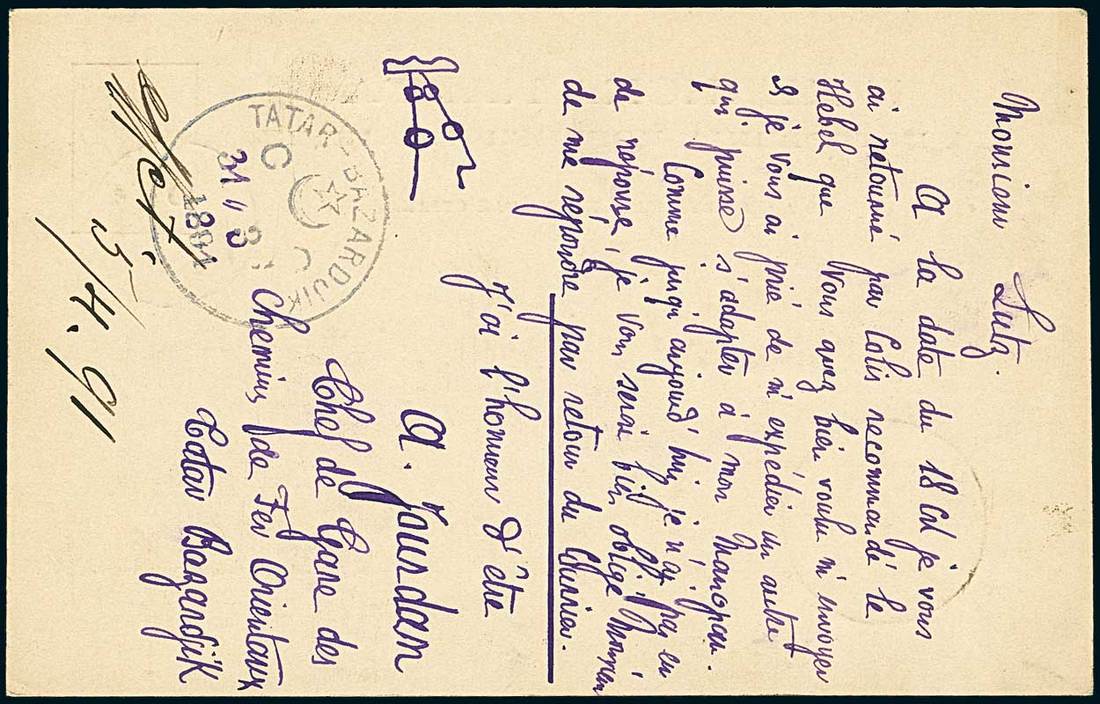 Monsieur Lutz.
A la date du 18 Ct je vous
ai retourné par Colis recommandé le
Hebel que Vous avez bien voulu m'envoyer
& je vous ai prié de m'expédier un autre
qui puisse s'adapter à mon Manopan.
Comme jusqu'aujourd'hui je n'ai pas eu
de réponse, je vous serai bien obligé Monsieur
de me repondre par retour du Courrier.
J'ai l'honneur d'être
A. Jourdan
Chef de Gare des
Chemins de Fer Orientaux
Tatar Bazardjik
TATAR-BAZARDJIK
31 3
1891
5/4.91